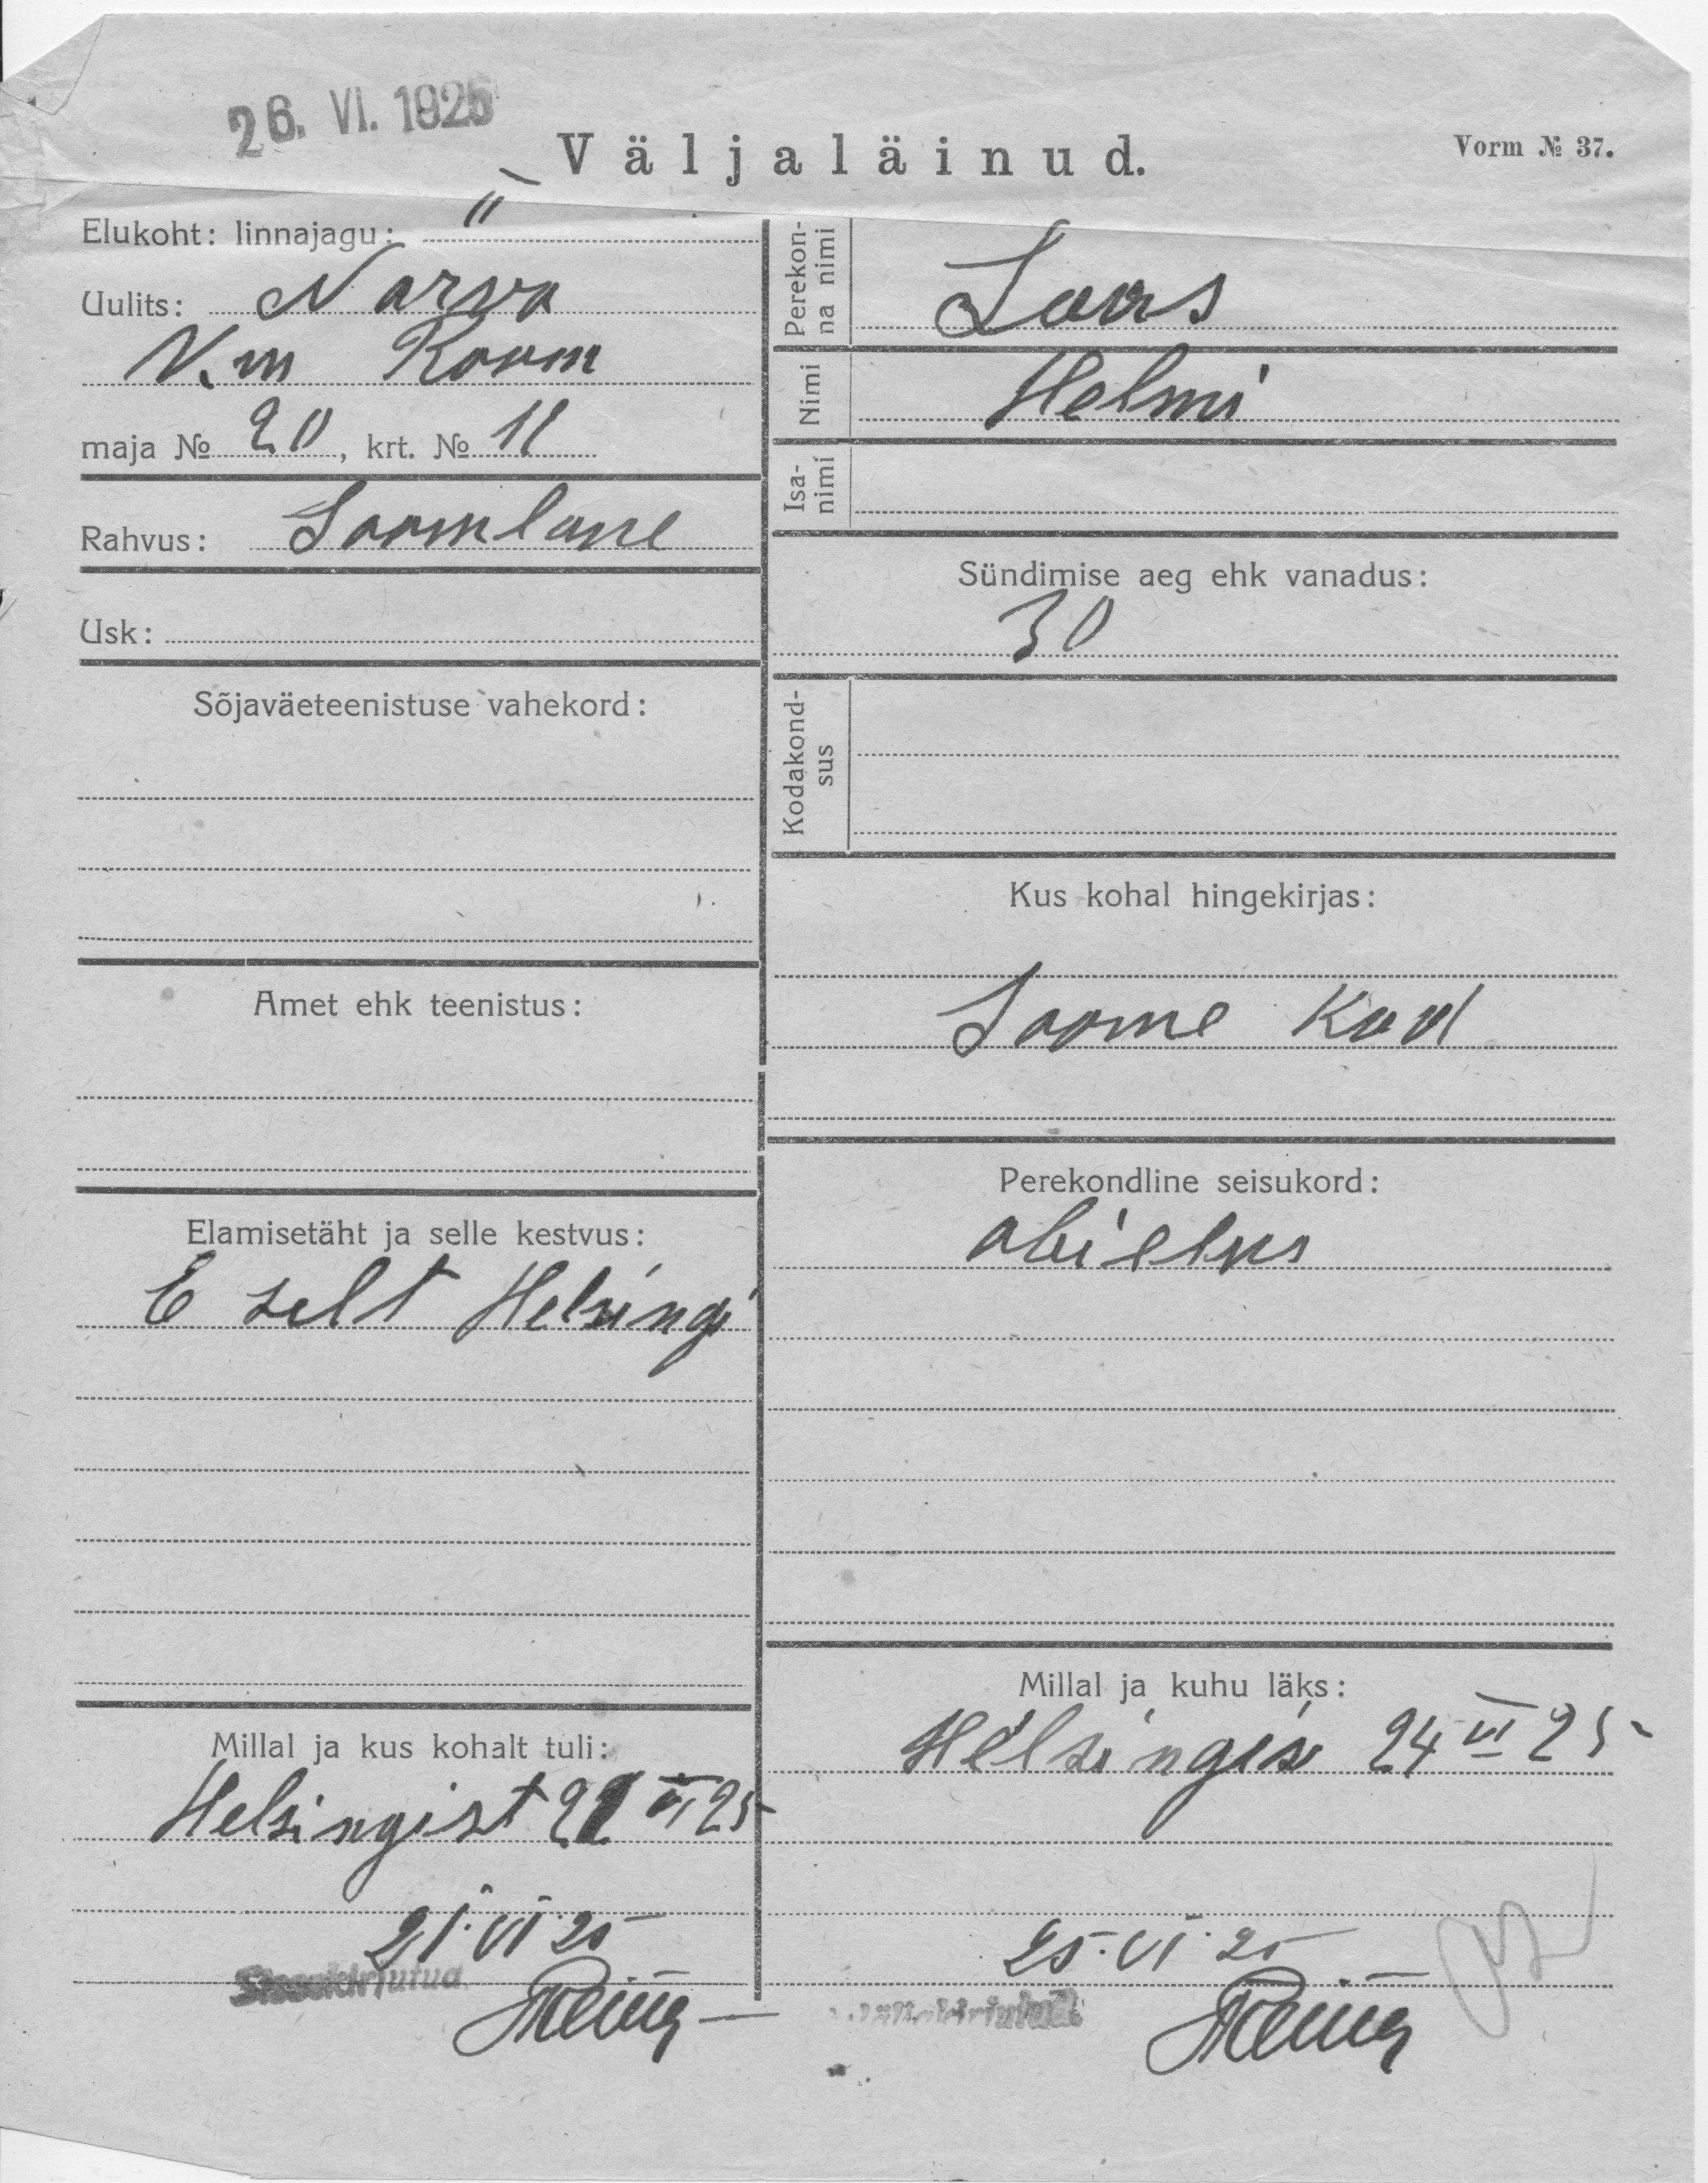 26. VI. 1925
Väljaläinud.
Vorm № 37.
Elukoht: linnajagu: II
Uulits: Narva
V. m Room
maja № 20, krt. № 11
Rahvus: Soomlane
Usk:
Sõjaväeteenistuse vahekord:
Amet ehk teenistus:
Elamisetäht ja selle kestvus:
E selt Helsingi
Millal ja kus kohalt tuli:
Helsingist 21 VI 25
21. VI 25
Sissekirjutud
Perekonna nimi
Laas
Nimi Helmi
Isanimi
Sündimise aeg ehk vanadus:
30
Kodakondsus
Kus kohal hingekirjas:
Soome Kod
Perekondline seisukord:
abielus
Millal ja kuhu läks:
Helsingis 24 VI 25
25. VI. 25